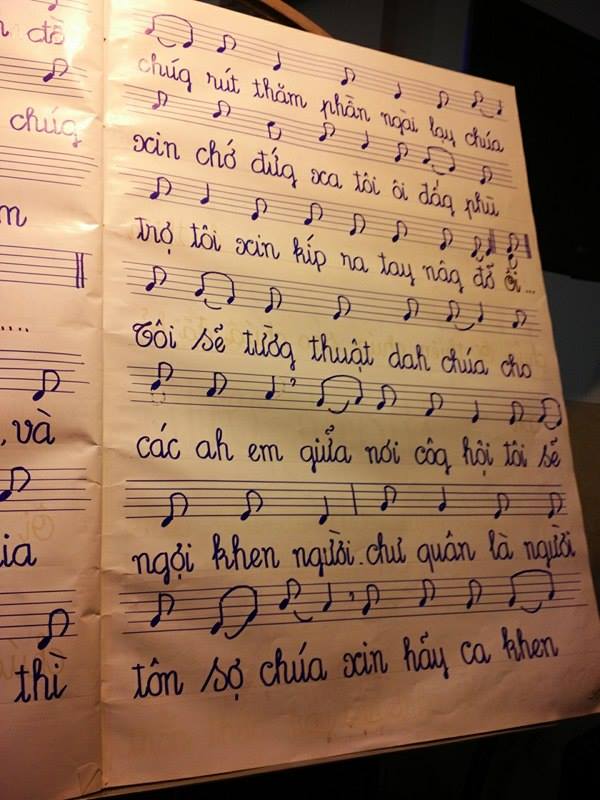 chúg
và
thì
chúg rút thăm phần ngài lạy chúa
xin chớ đứg xa tôi ôi đấg phù
trợ tôi xin kíp ra tay nâg đỡ ôi...
Tôi sẽ tườg thuật dah chúa cho
các ah em giửa nơi côg hội tôi sẽ
ngợi khen người. chư quân là người
tôn sợ chúa xin hãy ca khen